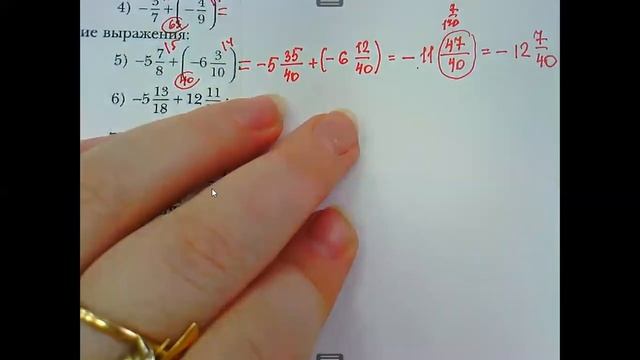 4) −3/7 + (−4/9) =
63
ние выражения:
5) −5 7/8 + (−6 3/10) = −5 35/40 + (−6 12/40) = −11 47/40 = −12 7/40
40
6) −5 13/18 + 12 11/